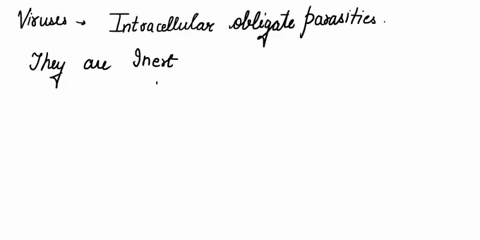 Viruses → Intracellular obligate parasities.
They are Inert